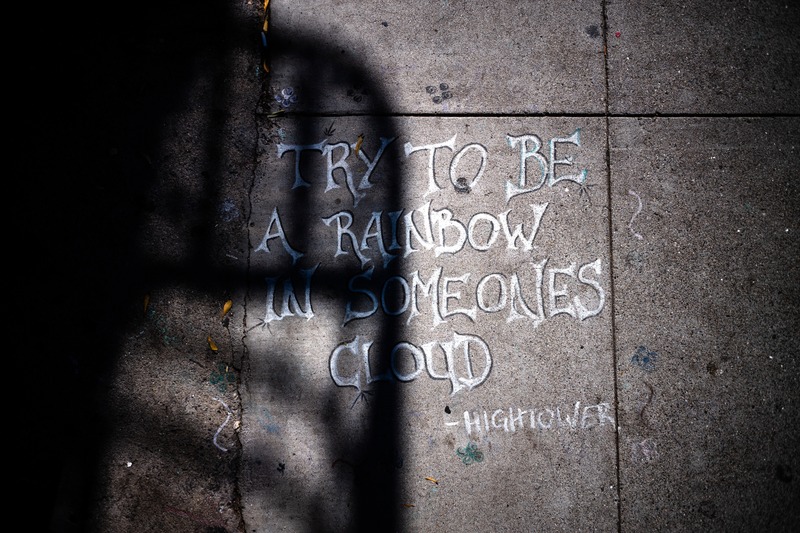 TRY TO BE
A RAINBOW
IN SOMEONES
CLOUD
-HIGHTOWER